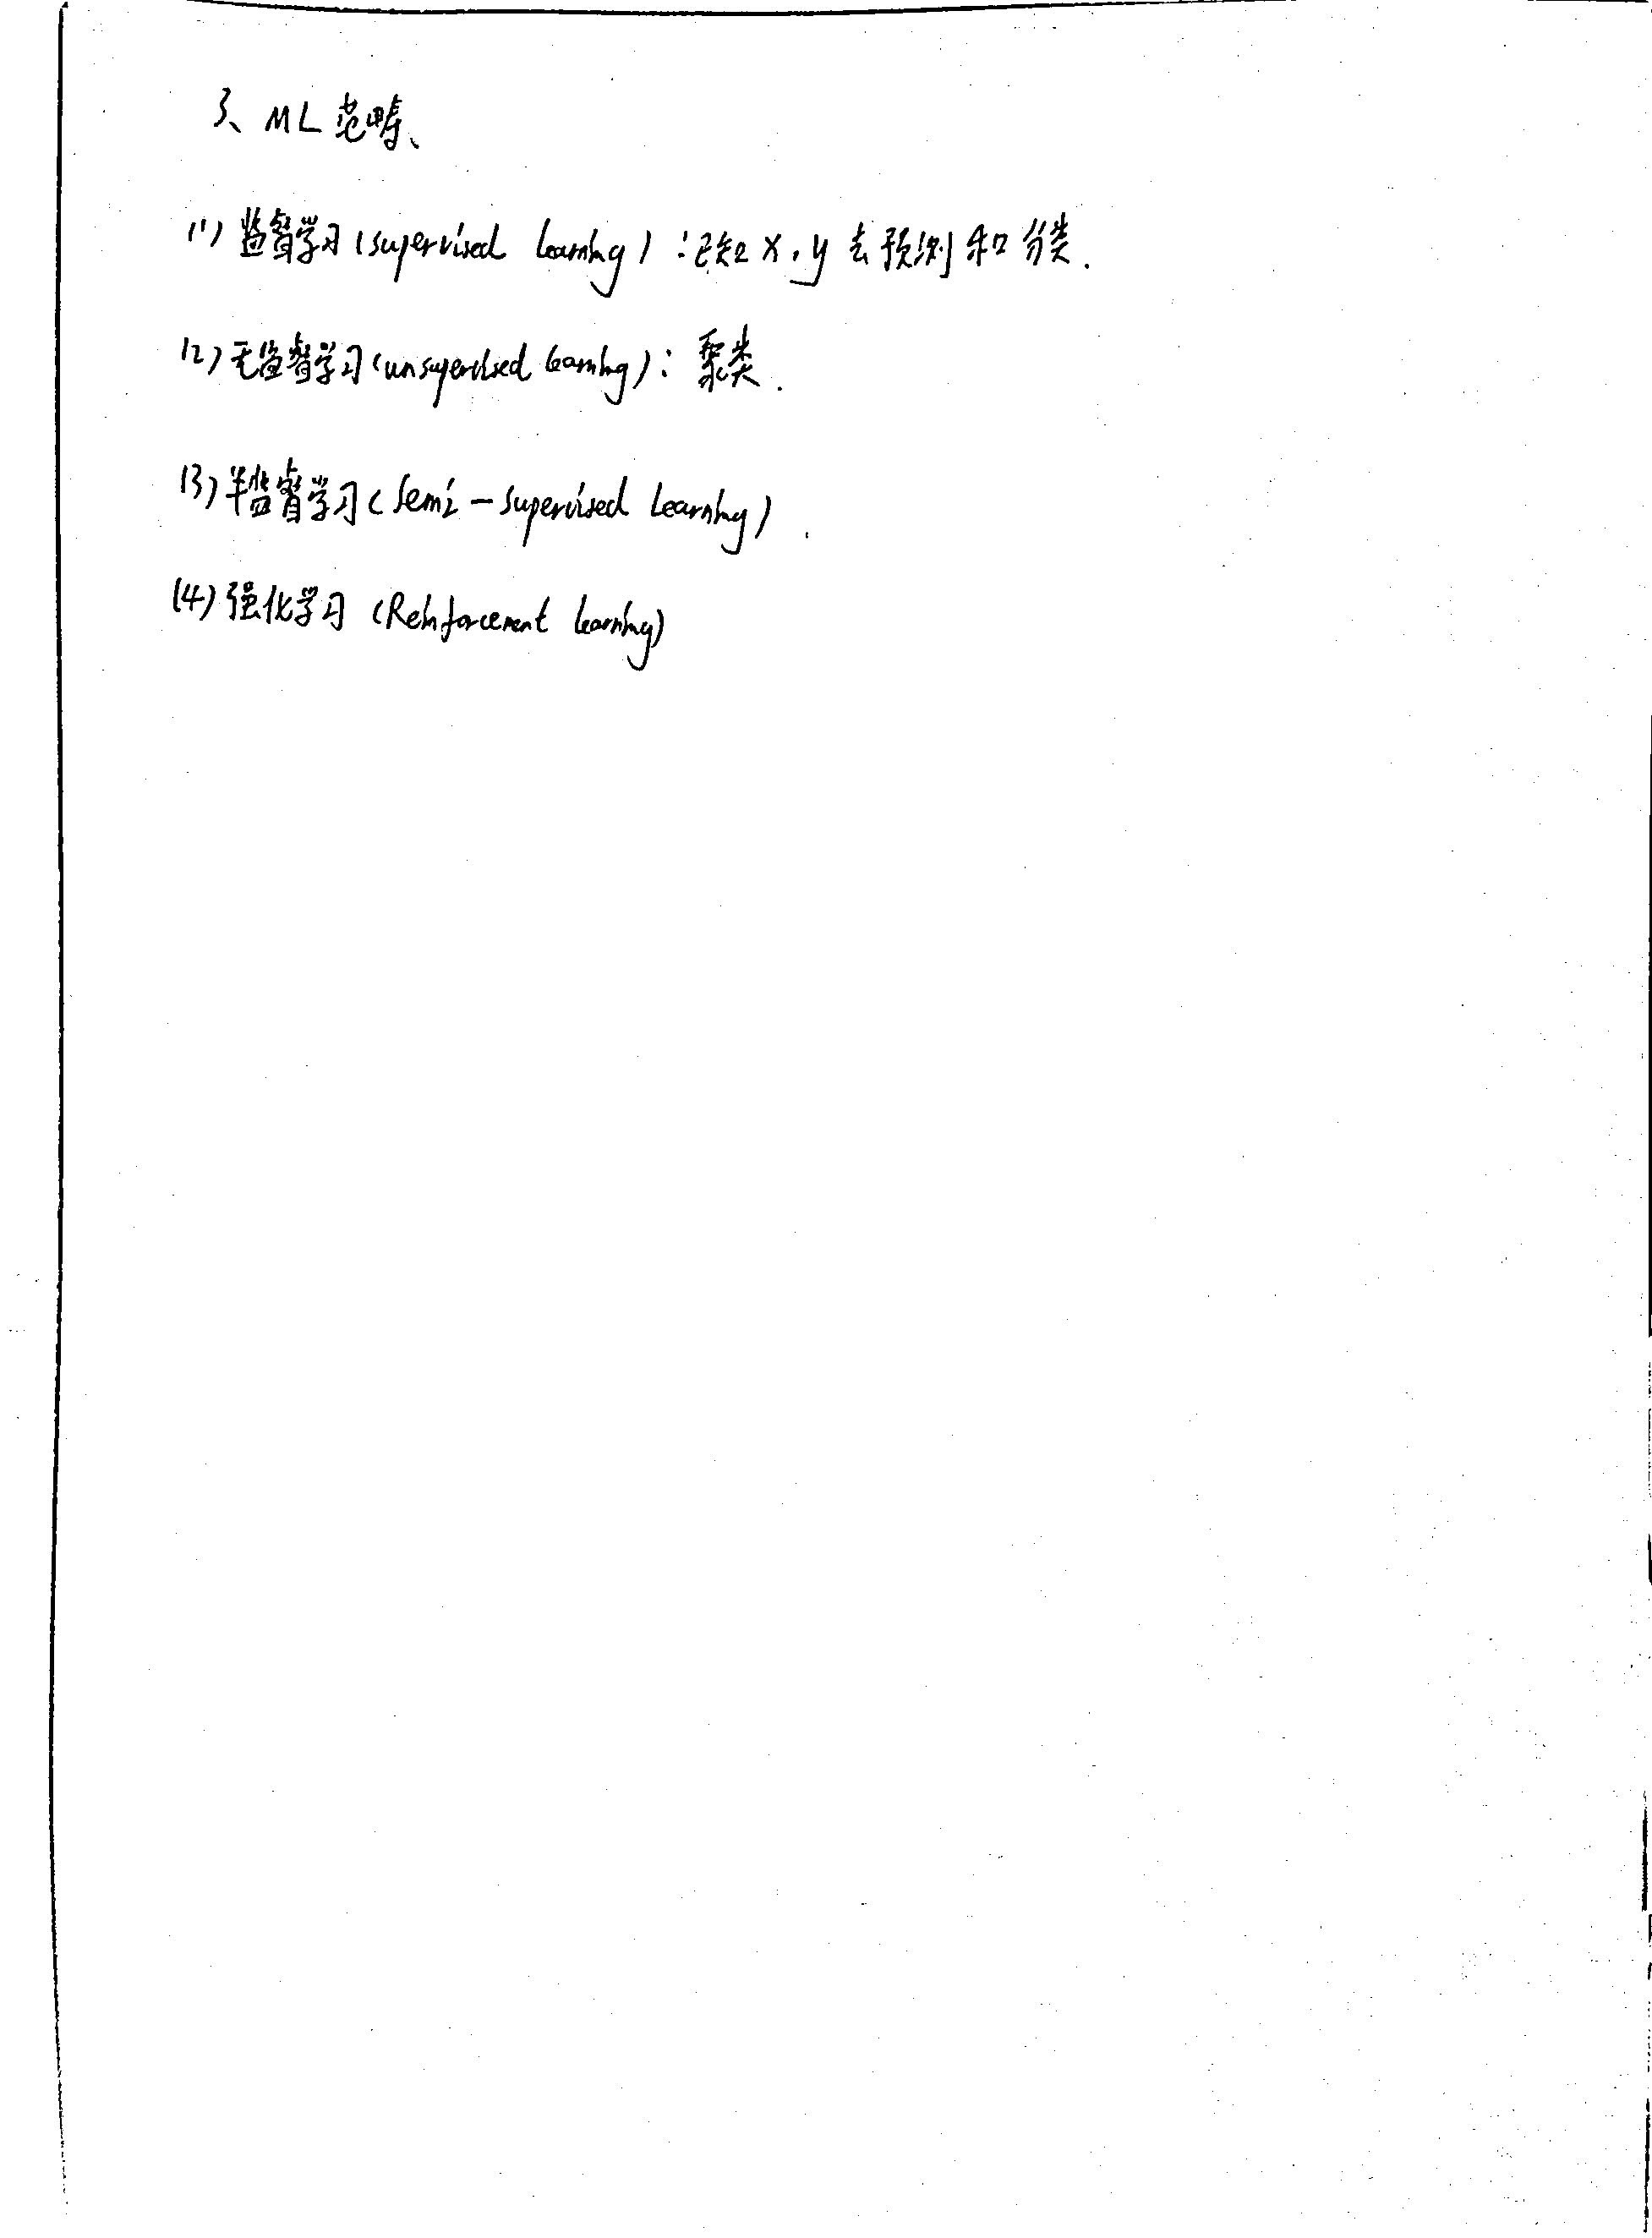 3、ML范畴、
(1)监督学习(supervised learning):已知x,y去预测和分类.
(2)无监督学习(unsupervised learning):聚类.
(3)半监督学习(semi-supervised learning).
(4)强化学习(Reinforcement learning)